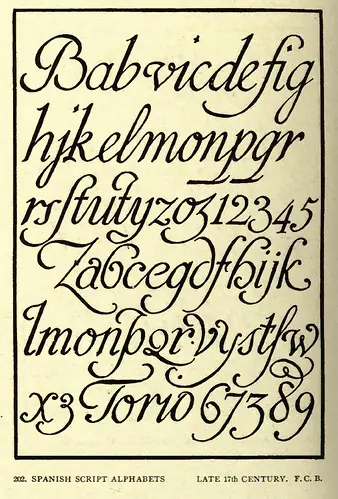 Babvicdefig
hjkelmonpqr
rsſtutyzoz12345
Zabcegdfhijk
lmonpqr.vystſw
x3 Torio 67389
202. SPANISH SCRIPT ALPHABETS LATE 17th CENTURY. F. C. B.